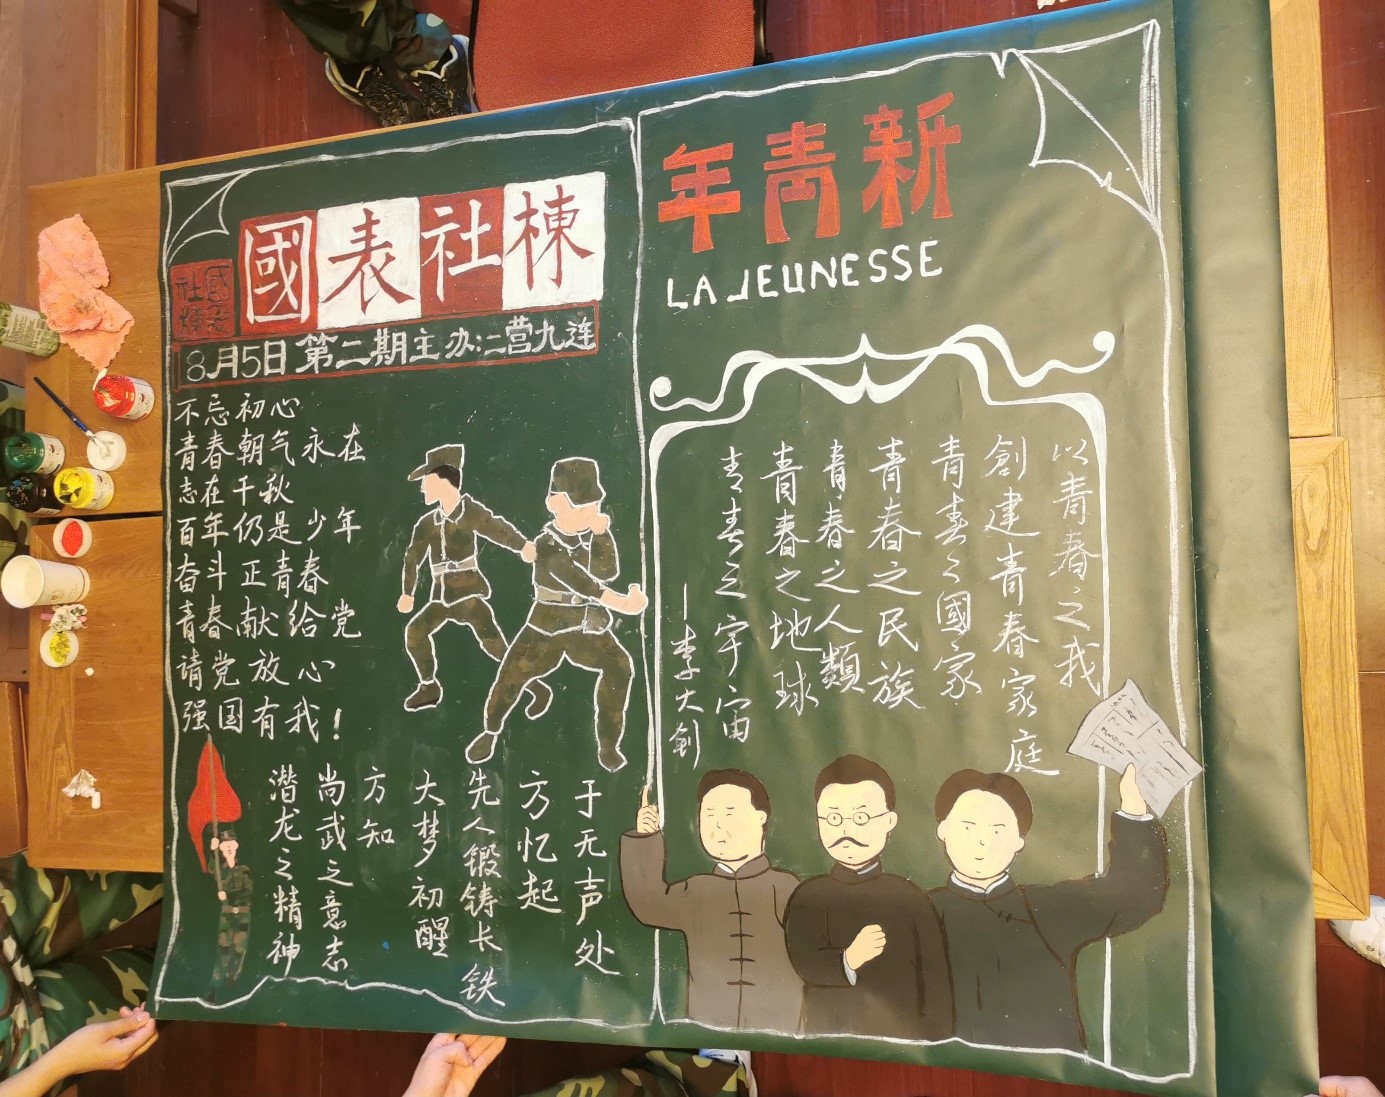 國表社棟
國表
社棟
8月5日 第二期主办:二营九连
不忘初心
青春朝气永在
志在千秋
百年仍是少年
奋斗正青春
青春献给党
请党放心
强国有我!
于无声处
方忆起
先人锻铸长铁
大梦初醒
方知
尚武之意志
潜龙之精神
新青年
LA JEUNESSE
以青春之我
創建青春家庭
青春之國家
青春之民族
青春之人類
青春之地球
青春之宇宙
—李大钊